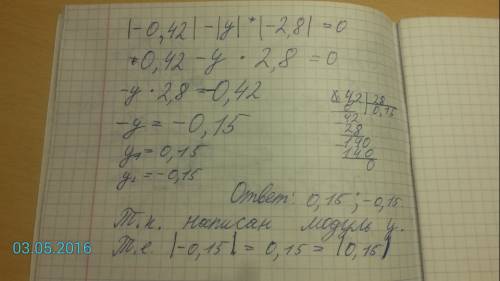 |-0,42| - |y| * |-2,8| = 0
0,42 - y · 2,8 = 0
-y · 2,8 = -0,42
-y = -0,15
y₁ = 0,15
y₂ = -0,15
42 | 28
0,15
42
28
140
140
0
Ответ: 0,15 ; -0,15.
Т.к. написан модуль y.
Т.е. |-0,15| = 0,15 = |0,15|
03.05.2016